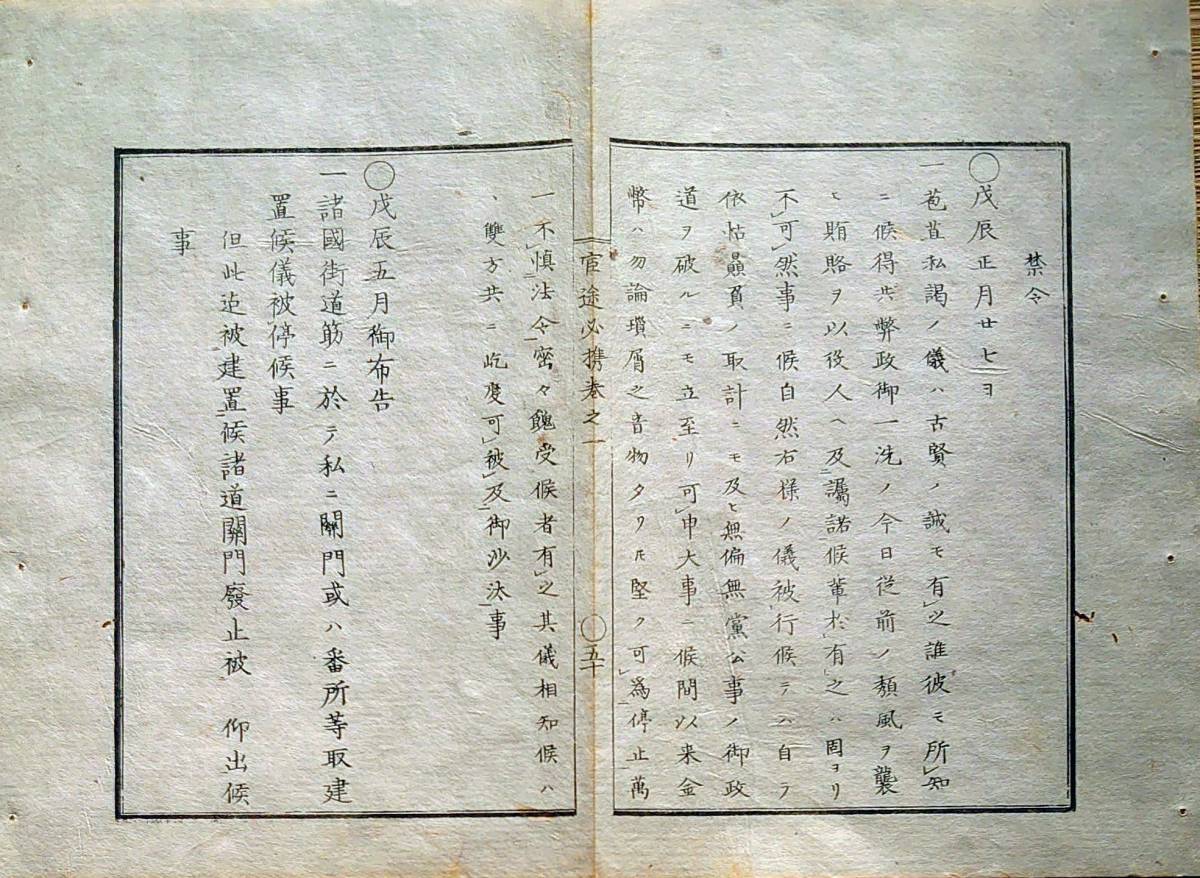 禁令
◯戊辰正月廿七ヨ
一苞苴私謁ノ儀ハ古賢ノ誡モ有之誰彼モ所知
ニ候得共弊政御一洗ノ今日従前ノ頽風ヲ襲
ヒ賄賂ヲ以役人ヘ及譸諾候輩於有之ハ固ヨリ
不可然事ニ候自然右様ノ儀被行候テハ自ラ
依怙贔負ノ取計ニモ及ヒ無偏無黨公事ノ御政
道ヲ破ルニモ立至リ可申大事ニ候間以来金
幣ハ勿論瑣屑之音物タリ𪜈堅ク可為停止萬
一不慎法令密々餽受候者有之其儀相知候ハ
、雙方共ニ屹度可被及御沙汰事
◯戊辰五月御布告
一諸國街道筋ニ於テ私ニ關門或ハ番所等取建
置候儀被停候事
但此迠被建置候諸道關門廢止被　仰出候
事
官途必携巻之一
◯五十